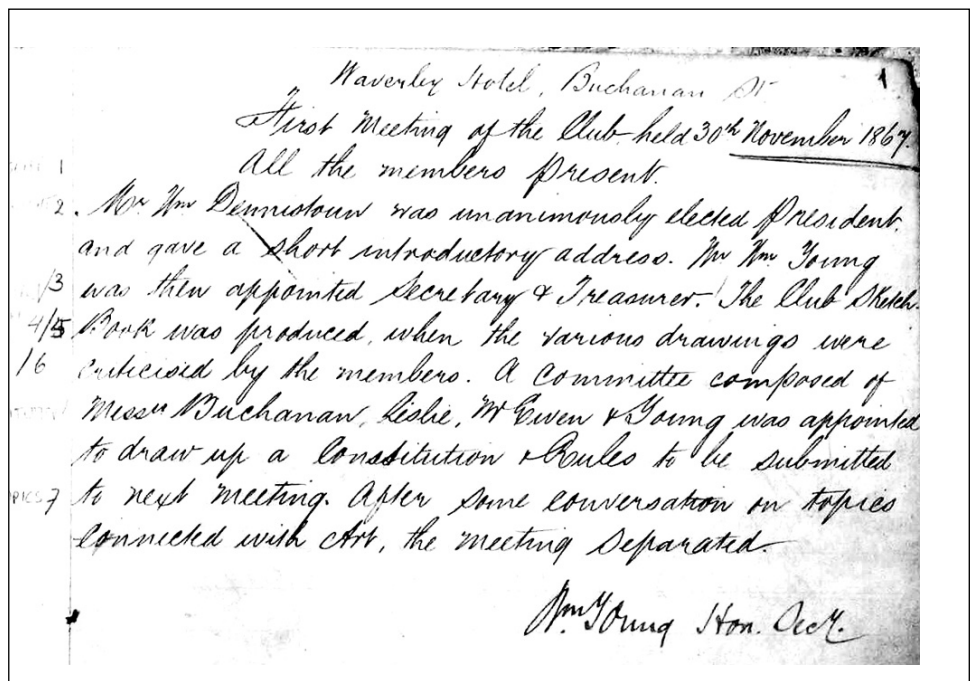 1
Waverley Hotel, Buchanan St
First Meeting of the Club held 30th November 1867.
1
All the members present.
2 Mr Wm Dennistoun was unanimously elected President,
and gave a short introductory address. Mr Wm Young
/3 was then appointed Secretary & Treasurer. The Club Sketch
4/5 Book was produced, when the various drawings were
/6 criticised by the members. A Committee composed of
Messrs Buchanan, Leslie, McEwen & Young was appointed
to draw up a Constitution & Rules to be submitted
7 to next meeting. After some conversation on topics
connected with Art, the meeting separated.
Wm. Young Hon. Secy.